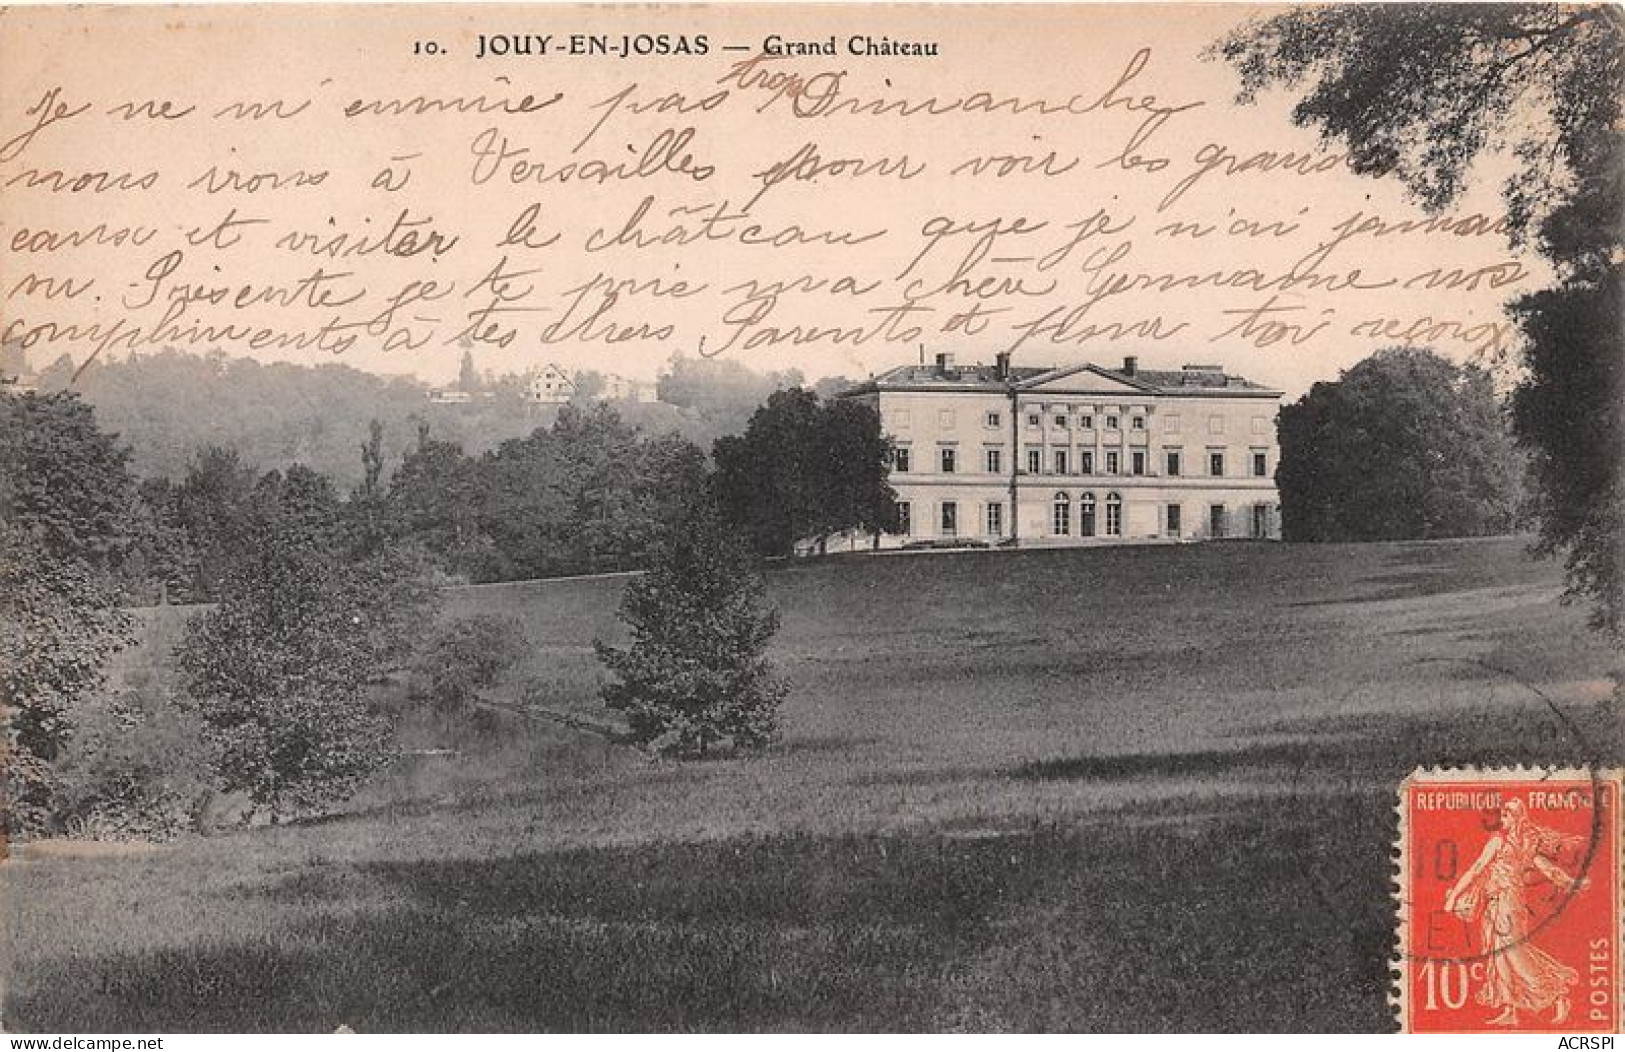 10. JOUY-EN-JOSAS — Grand Château
je ne m'ennuie pas trop Dimanche
nous irons à Versailles pour voir les grand
eaux et visiter le château que je n'ai jamais
vu. Présente je te prie ma chère Germaine nos
compliments à tes chers Parents et pour toi reçois
REPUBLIQUE FRANÇAISE
10
10c
POSTES
delcampe.net
ACRSPI